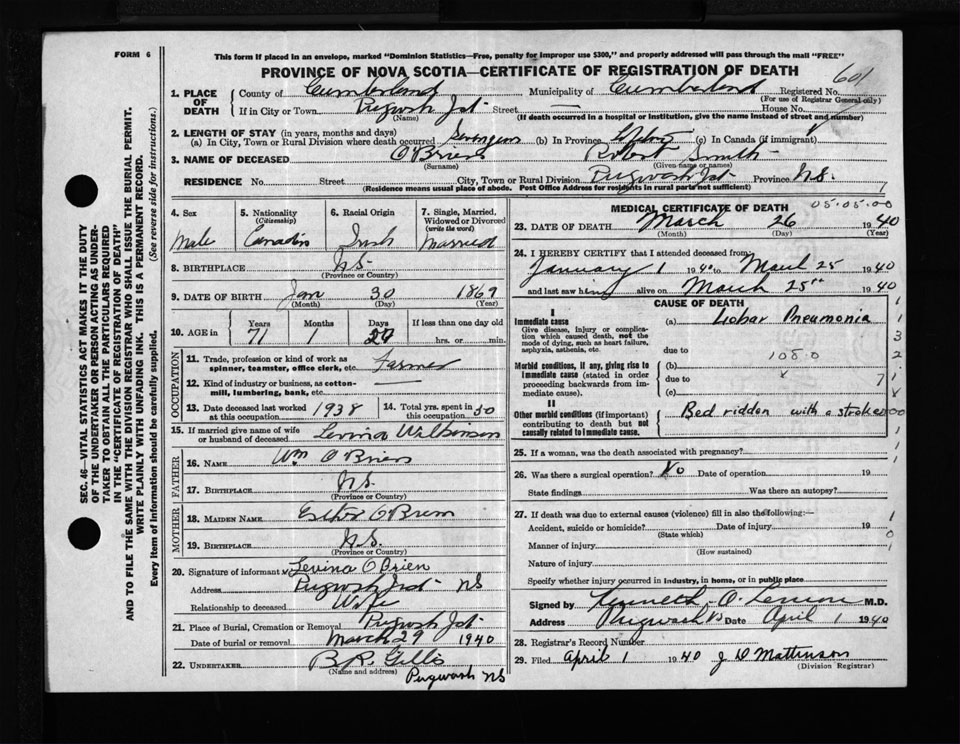 FORM 6
This form if placed in an envelope, marked "Dominion Statistics—Free, penalty for improper use $300," and properly addressed will pass through the mail "FREE"
PROVINCE OF NOVA SCOTIA—CERTIFICATE OF REGISTRATION OF DEATH
601
1. PLACE OF DEATH
County of Cumberland Municipality of Cumberland Registered No.
(For use of Registrar General only)
If in City or Town Pugwash Jct Street — House No.
(Name) (If death occurred in a hospital or institution, give the name instead of street and number)
2. LENGTH OF STAY (in years, months and days)
(a) In City, Town or Rural Division where death occurred (b) In Province (c) In Canada (if immigrant)
3. NAME OF DECEASED O'Brien Robert Smith
(Surname) (Given name or names)
RESIDENCE No. Street City, Town or Rural Division Pugwash Jct Province N.S.
(Residence means usual place of abode. Post Office Address for residents in rural parts not sufficient)
4. Sex
Male
5. Nationality
(Citizenship)
Canadian
6. Racial Origin
Irish
7. Single, Married, Widowed or Divorced
(write the word)
Married
8. BIRTHPLACE N.S.
(Province or Country)
9. DATE OF BIRTH Jan 30 1869
(Month) (Day) (Year)
10. AGE in
Years Months Days If less than one day old
71 1 hrs. or min.
OCCUPATION
11. Trade, profession or kind of work as spinner, teamster, office clerk, etc. Farmer
12. Kind of industry or business, as cotton-mill, lumbering, bank, etc. —
13. Date deceased last worked at this occupation 1938
14. Total yrs. spent in this occupation 50
15. If married give name of wife or husband of deceased Levina Wilkinson
FATHER
16. NAME Wm O'Brien
17. BIRTHPLACE N.S.
(Province or Country)
MOTHER
18. MAIDEN NAME Esther O'Brien
19. BIRTHPLACE N.S.
(Province or Country)
20. Signature of informant x Levina O'Brien
Address Pugwash Jct NS
Relationship to deceased Wife
21. Place of Burial, Cremation or Removal Pugwash Jct
Date of burial or removal March 29 1940
22. UNDERTAKER B.R. Gillis
(Name and address) Pugwash NS
MEDICAL CERTIFICATE OF DEATH
05.05.00
23. DATE OF DEATH March 26 1940
(Month) (Day) (Year)
24. I HEREBY CERTIFY that I attended deceased from
January 1 1940 to March 25 1940
and last saw him alive on March 25th 1940
CAUSE OF DEATH
I
Immediate cause
Give disease, injury or complication which caused death, not the mode of dying, such as heart failure, asphyxia, asthenia, etc.
(a) Lobar Pneumonia
due to
108.0
Morbid conditions, if any, giving rise to immediate cause (stated in order proceeding backwards from immediate cause)
(b)
due to
(c)
II
Other morbid conditions (if important) contributing to death but not causally related to immediate cause.
Bed ridden with a stroke
25. If a woman, was the death associated with pregnancy?
26. Was there a surgical operation? No Date of operation 19
State findings Was there an autopsy?
27. If death was due to external causes (violence) fill in also the following:—
Accident, suicide or homicide? Date of injury 19
(State which)
Manner of injury
(How sustained)
Nature of injury
Specify whether injury occurred in industry, in home, or in public place
Signed by Kenneth O. M.D.
Address Pugwash NS Date April 1 1940
28. Registrar's Record Number
29. Filed April 1 1940 J D Mattinson
(Division Registrar)
SEC. 46—VITAL STATISTICS ACT MAKES IT THE DUTY
OF THE UNDERTAKER OR PERSON ACTING AS UNDER-
TAKER TO OBTAIN ALL THE PARTICULARS REQUIRED
IN THE "CERTIFICATE OF REGISTRATION OF DEATH"
AND TO FILE THE SAME WITH THE DIVISION REGISTRAR WHO SHALL ISSUE THE BURIAL PERMIT.
WRITE PLAINLY WITH UNFADING INK. THIS IS A PERMANENT RECORD.
Every item of information should be carefully supplied. (See reverse side for instructions).